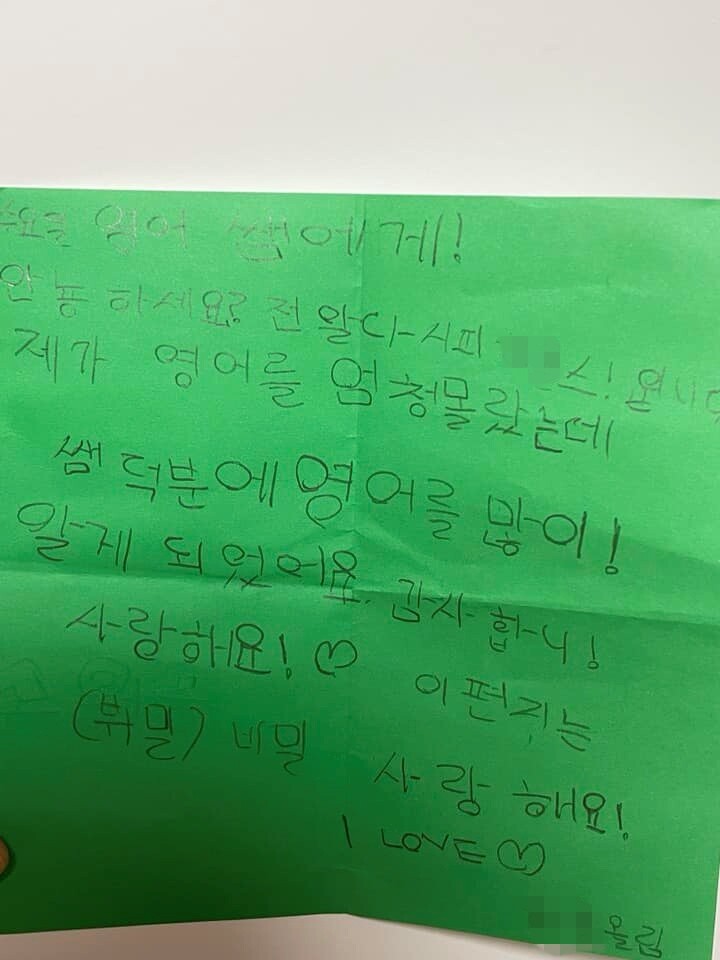 수요일 영어 쌤에게!
안뇽하세요? 전 알다시피 스! 입니다
제가 영어를 엄청몰랐는데
쌤 덕분에 영어를 많이!
알게 되었어요. 감사합니!
사랑해요! ♡ 이편지는
(쀠밀) 비밀
사랑해요!
I LOVE ♡
올림